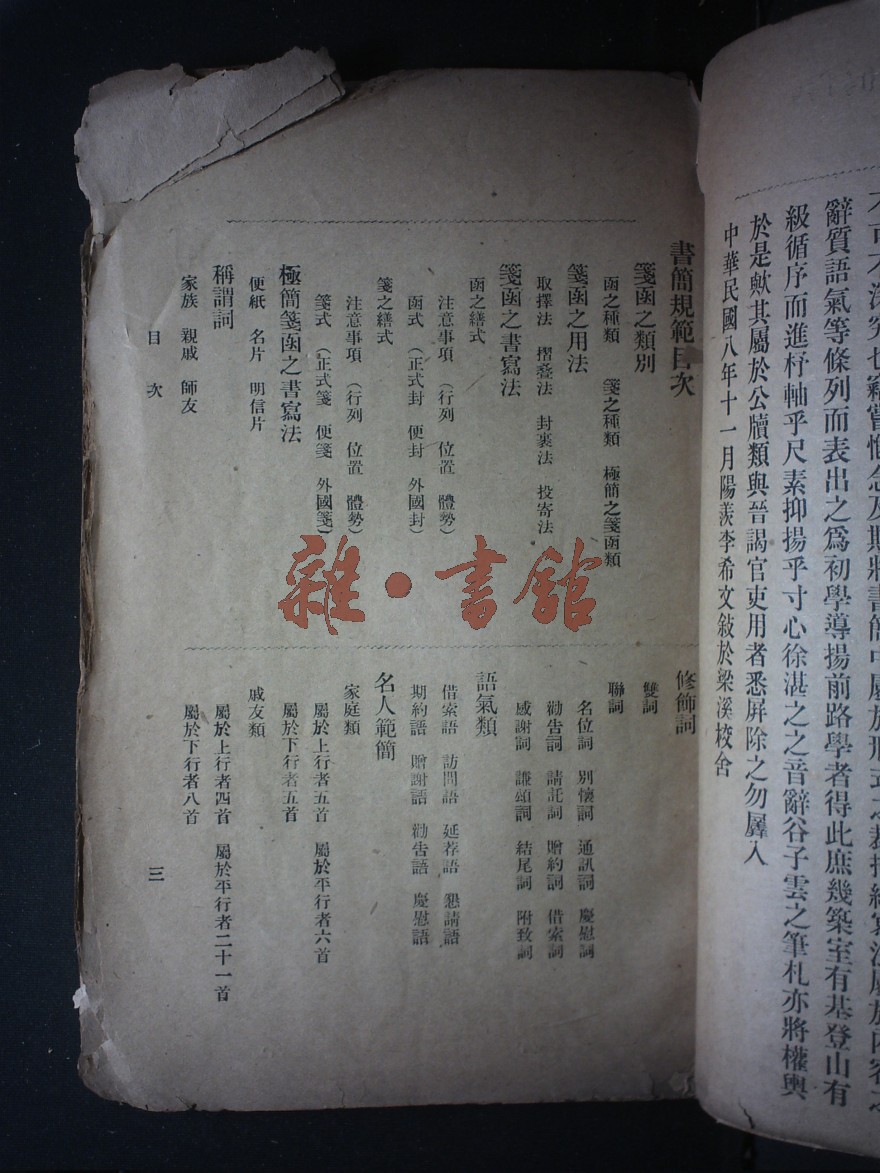 辭質語氣等條列而表出之爲初學導揚前路學者得此庶幾築室有基登山有
級循序而進杼軸乎尺素抑揚乎寸心徐湛之之音辭谷子雲之筆札亦將權輿
於是歟其屬於公牘類與晉謁官吏用者悉屏除之勿羼入
中華民國八年十一月陽羨李希文敍於梁溪校舍
書簡規範目次
箋函之類別
函之種類 箋之種類 極簡之箋函類
箋函之用法
取擇法 摺叠法 封裹法 投寄法
箋函之書寫法
函之繕式
注意事項 (行列 位置 體勢)
函式 (正式封 便封 外國封)
箋之繕式
注意事項 (行列 位置 體勢)
箋式 (正式箋 便箋 外國箋)
極簡箋函之書寫法
便紙 名片 明信片
稱謂詞
家族 親戚 師友
修飾詞
雙詞
聯詞
名位詞 別懷詞 通訊詞 慶慰詞
勸告詞 請託詞 贈約詞 借索詞
感謝詞 謙頌詞 結尾詞 附致詞
語氣類
借索語 訪問語 延荐語 懇請語
期約語 贈謝語 勸告語 慶慰語
名人範簡
家庭類
屬於上行者五首 屬於平行者六首
屬於下行者五首
戚友類
屬於上行者四首 屬於平行者二十一首
屬於下行者八首
目次
三
雜·書館